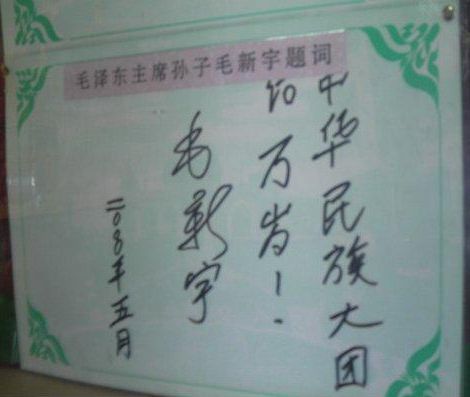 毛泽东主席孙子毛新宇题词
中华民族大团
结万岁!
毛新宇
年五月